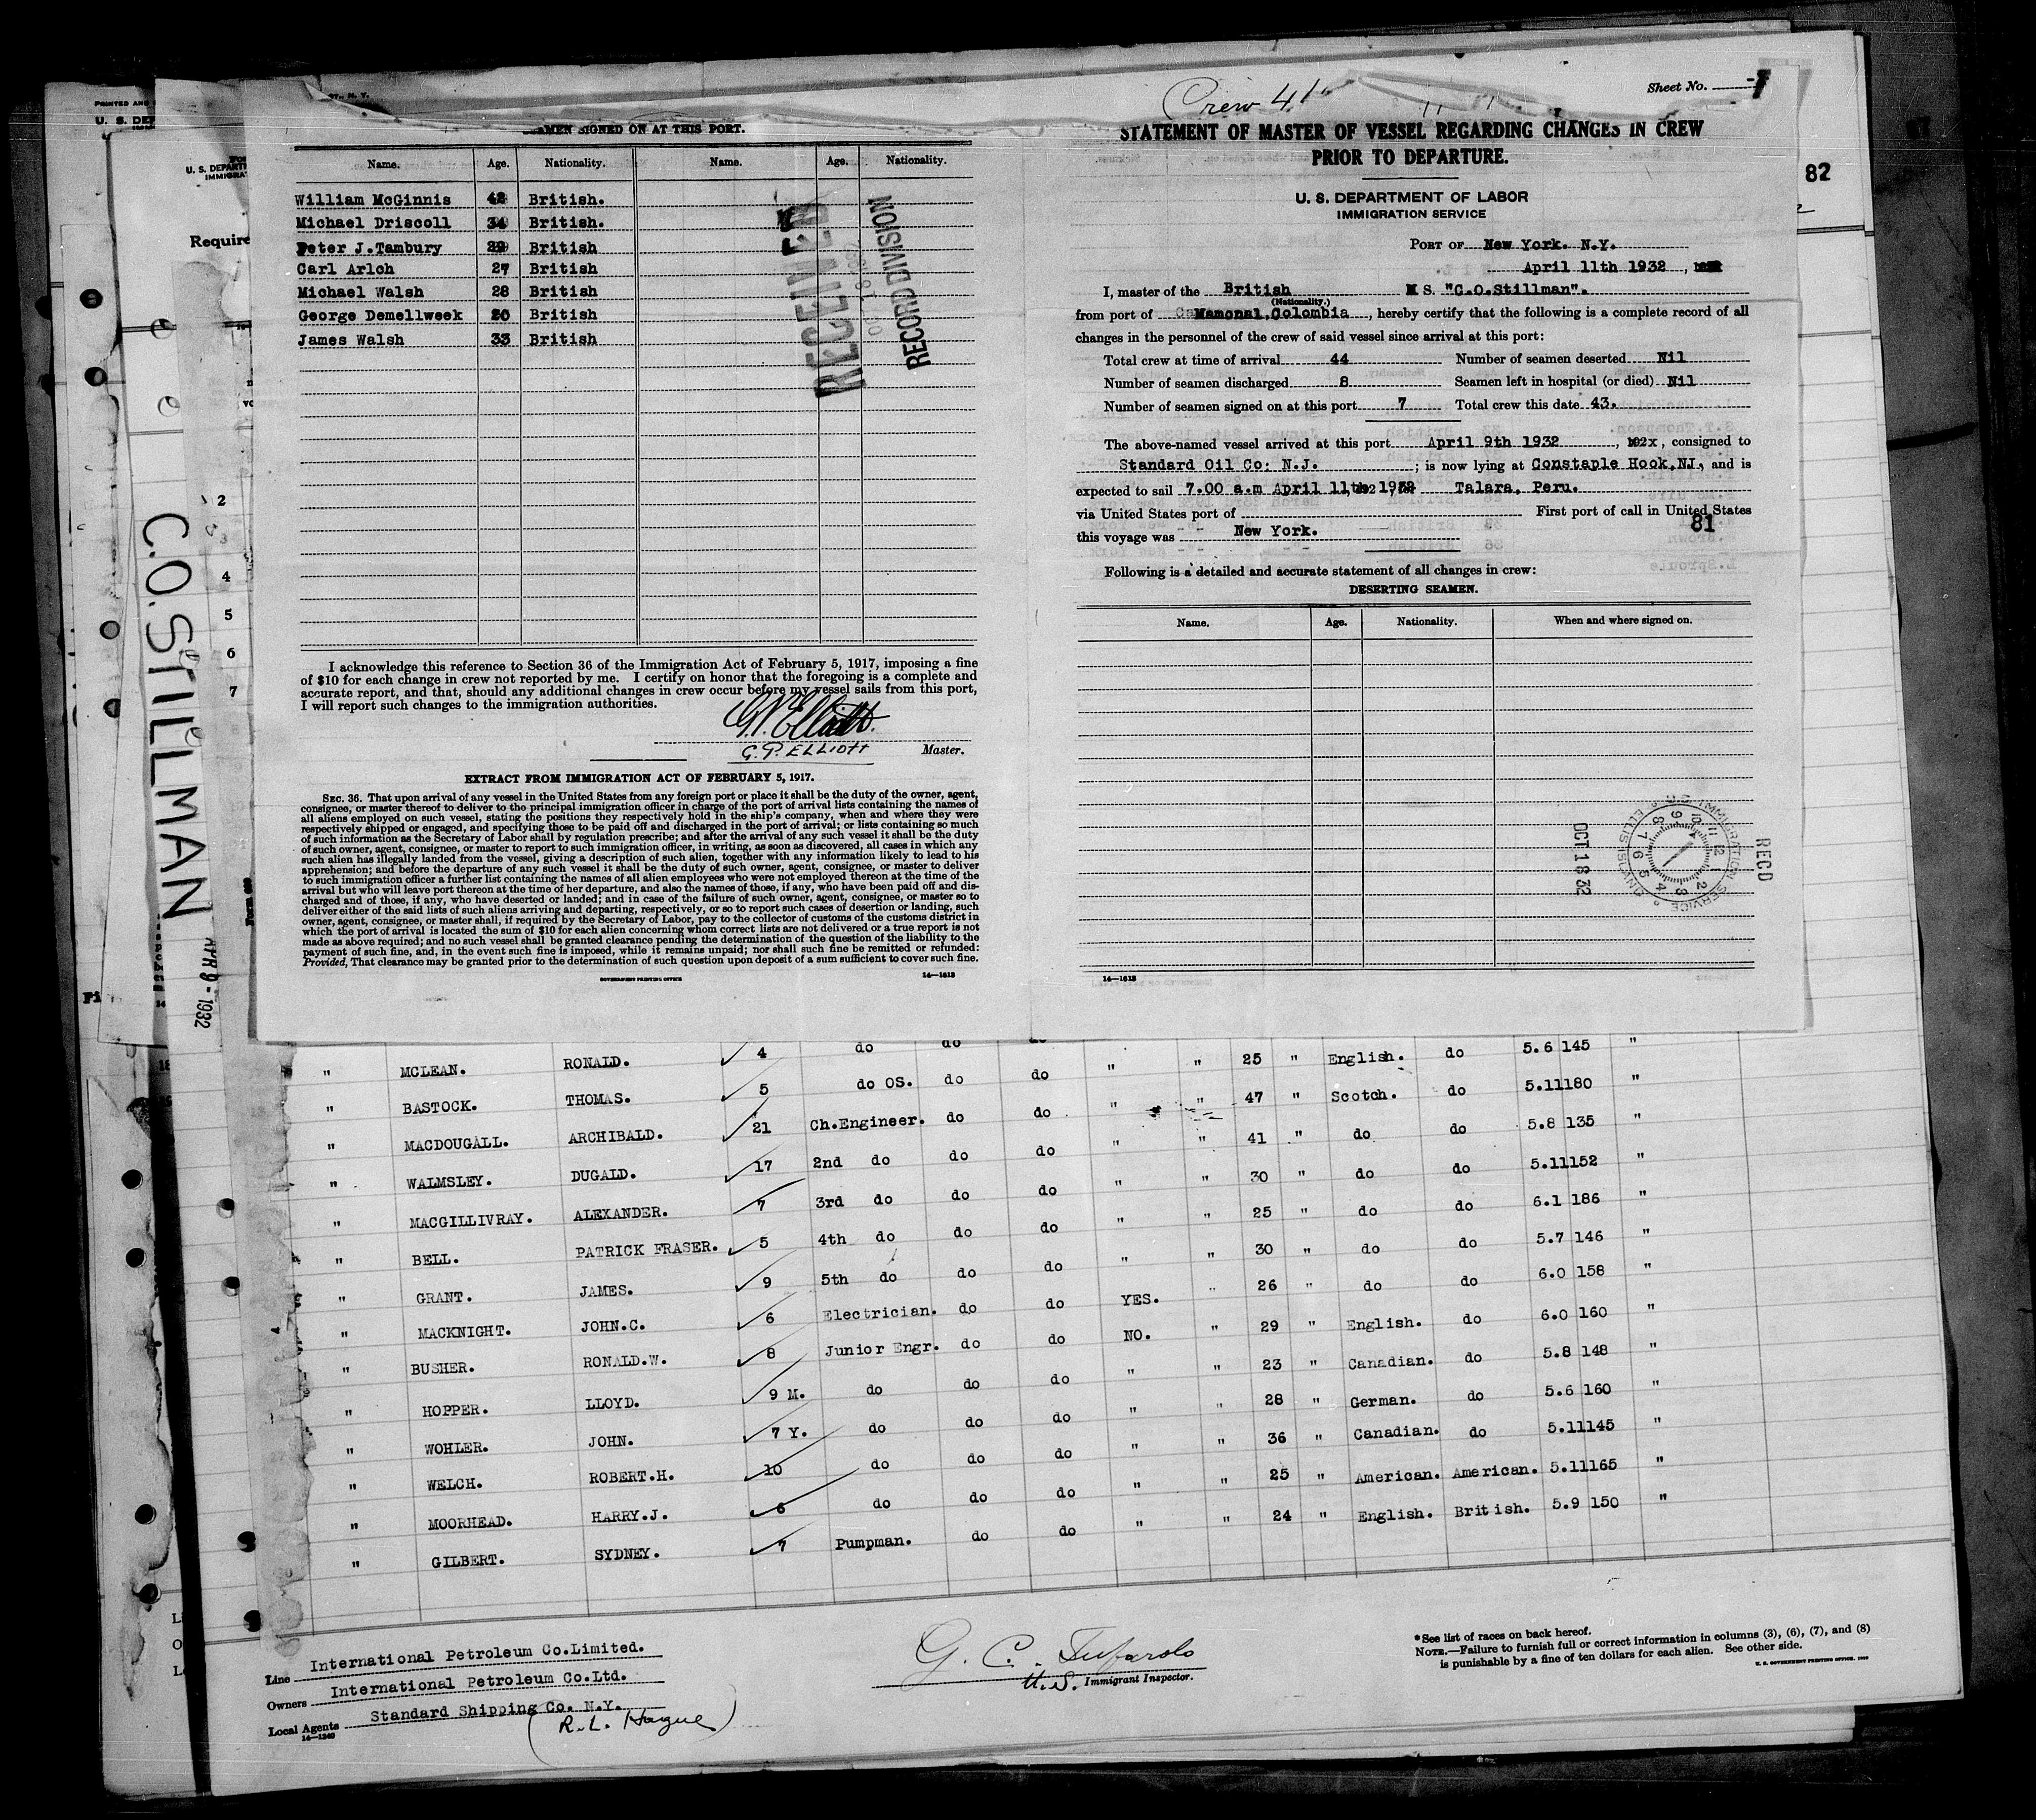 PRINTED AND
U. S. DEP
U. S. DEPART
IMMIGRA
Require
C.O. STILLMAN
APR 9 - 1932
2
3
4
5
6
7
82
SEAMEN SIGNED ON AT THIS PORT.
Name. Age. Nationality. Name. Age. Nationality.
William McGinnis 42 British.
Michael Driscoll 34 British.
Peter J.Tambury 29 British
Carl Arlch 27 British
Michael Walsh 28 British
George Demellweek 20 British
James Walsh 33 British
RECEIVED
RECORD DIVISION
I acknowledge this reference to Section 36 of the Immigration Act of February 5, 1917, imposing a fine
of $10 for each change in crew not reported by me. I certify on honor that the foregoing is a complete and
accurate report, and that, should any additional changes in crew occur before my vessel sails from this port,
I will report such changes to the immigration authorities.
G.P. Elliott.
G.P. ELLIOTT Master.
EXTRACT FROM IMMIGRATION ACT OF FEBRUARY 5, 1917.
SEC. 36. That upon arrival of any vessel in the United States from any foreign port or place it shall be the duty of the owner, agent,
consignee, or master thereof to deliver to the principal immigration officer in charge of the port of arrival lists containing the names of
all aliens employed on such vessel, stating the positions they respectively hold in the ship's company, when and where they were
respectively shipped or engaged, and specifying those to be paid off and discharged in the port of arrival; or lists containing so much
of such information as the Secretary of Labor shall by regulation prescribe; and after the arrival of any such vessel it shall be the duty
of such owner, agent, consignee, or master to report to such immigration officer, in writing, as soon as discovered, all cases in which any
such alien has illegally landed from the vessel, giving a description of such alien, together with any information likely to lead to his
apprehension; and before the departure of any such vessel it shall be the duty of such owner, agent, consignee, or master to deliver
to such immigration officer a further list containing the names of all alien employees who were not employed thereon at the time of the
arrival but who will leave port thereon at the time of her departure, and also the names of those, if any, who have been paid off and dis-
charged and of those, if any, who have deserted or landed; and in case of the failure of such owner, agent, consignee, or master so to
deliver either of the said lists of such aliens arriving and departing, respectively, or so to report such cases of desertion or landing, such
owner, agent, consignee, or master shall, if required by the Secretary of Labor, pay to the collector of customs of the customs district in
which the port of arrival is located the sum of $10 for each alien concerning whom correct lists are not delivered or a true report is not
made as above required; and no such vessel shall be granted clearance pending the determination of the question of the liability to the
payment of such fine, and, in the event such fine is imposed, while it remains unpaid; nor shall such fine be remitted or refunded:
Provided, That clearance may be granted prior to the determination of such question upon deposit of a sum sufficient to cover such fine.
GOVERNMENT PRINTING OFFICE 14—1613
Crew 41
Sheet No. 1
STATEMENT OF MASTER OF VESSEL REGARDING CHANGES IN CREW
PRIOR TO DEPARTURE.
U. S. DEPARTMENT OF LABOR
IMMIGRATION SERVICE
PORT OF New York. N.Y.
April 11th 1932 ,
I, master of the British M S. "C.O.Stillman".
(Nationality.)
from port of Mamonal,Colombia , hereby certify that the following is a complete record of all
changes in the personnel of the crew of said vessel since arrival at this port:
Total crew at time of arrival 44 Number of seamen deserted Nil
Number of seamen discharged 8 Seamen left in hospital (or died) Nil
Number of seamen signed on at this port 7 Total crew this date 43.
The above-named vessel arrived at this port April 9th 1932 , 192x, consigned to
Standard Oil Co: N.J. ; is now lying at Constaple Hook,NJ., and is
expected to sail 7.00 a.m April 11th 1932 Talara, Peru.
via United States port of First port of call in United States
81
this voyage was New York.
Following is a detailed and accurate statement of all changes in crew:
DESERTING SEAMEN.
Name. Age. Nationality. When and where signed on.
REC'D
U.S. IMMIGRATION SERVICE ELLIS ISLAND
OCT 18 32
14—1613
" MCLEAN. RONALD. 4 do do do
" BASTOCK. THOMAS. 5 do OS. do do " " 25 " English. do 5.6 145 "
" MACDOUGALL. ARCHIBALD. 21 Ch.Engineer. do do " " 47 " Scotch. do 5.11 180 "
" WALMSLEY. DUGALD. 17 2nd do do do " " 41 " do do 5.8 135 "
" MACGILLIVRAY. ALEXANDER. 7 3rd do do do " " 30 " do do 5.11 152 "
" BELL. PATRICK FRASER. 5 4th do do do " " 25 " do do 6.1 186 "
" GRANT. JAMES. 9 5th do do do " " 30 " do do 5.7 146 "
" MACKNIGHT. JOHN.C. 6 Electrician. do do YES. " 26 " do do 6.0 158 "
" BUSHER. RONALD.W. 8 Junior Engr. do do NO. " 29 " English. do 6.0 160 "
" HOPPER. LLOYD. 9 M. do do do " " 23 " Canadian. do 5.8 148 "
" WOHLER. JOHN. 7 Y. do do do " " 28 " German. do 5.6 160 "
" WELCH. ROBERT.H. 10 do do do " " 36 " Canadian. do 5.11 145 "
" MOORHEAD. HARRY.J. 6 do do do " " 25 " American. American. 5.11 165 "
" GILBERT. SYDNEY. 7 Pumpman. do do " " 24 " English. British. 5.9 150 "
Line International Petroleum Co.Limited.
Owners International Petroleum Co.Ltd.
Local Agents Standard Shipping Co. N.Y.
14—1240
(R.L. Hague)
U.S. Immigrant Inspector.
*See list of races on back hereof.
NOTE.—Failure to furnish full or correct information in columns (3), (6), (7), and (8)
is punishable by a fine of ten dollars for each alien. See other side.
U. S. GOVERNMENT PRINTING OFFICE